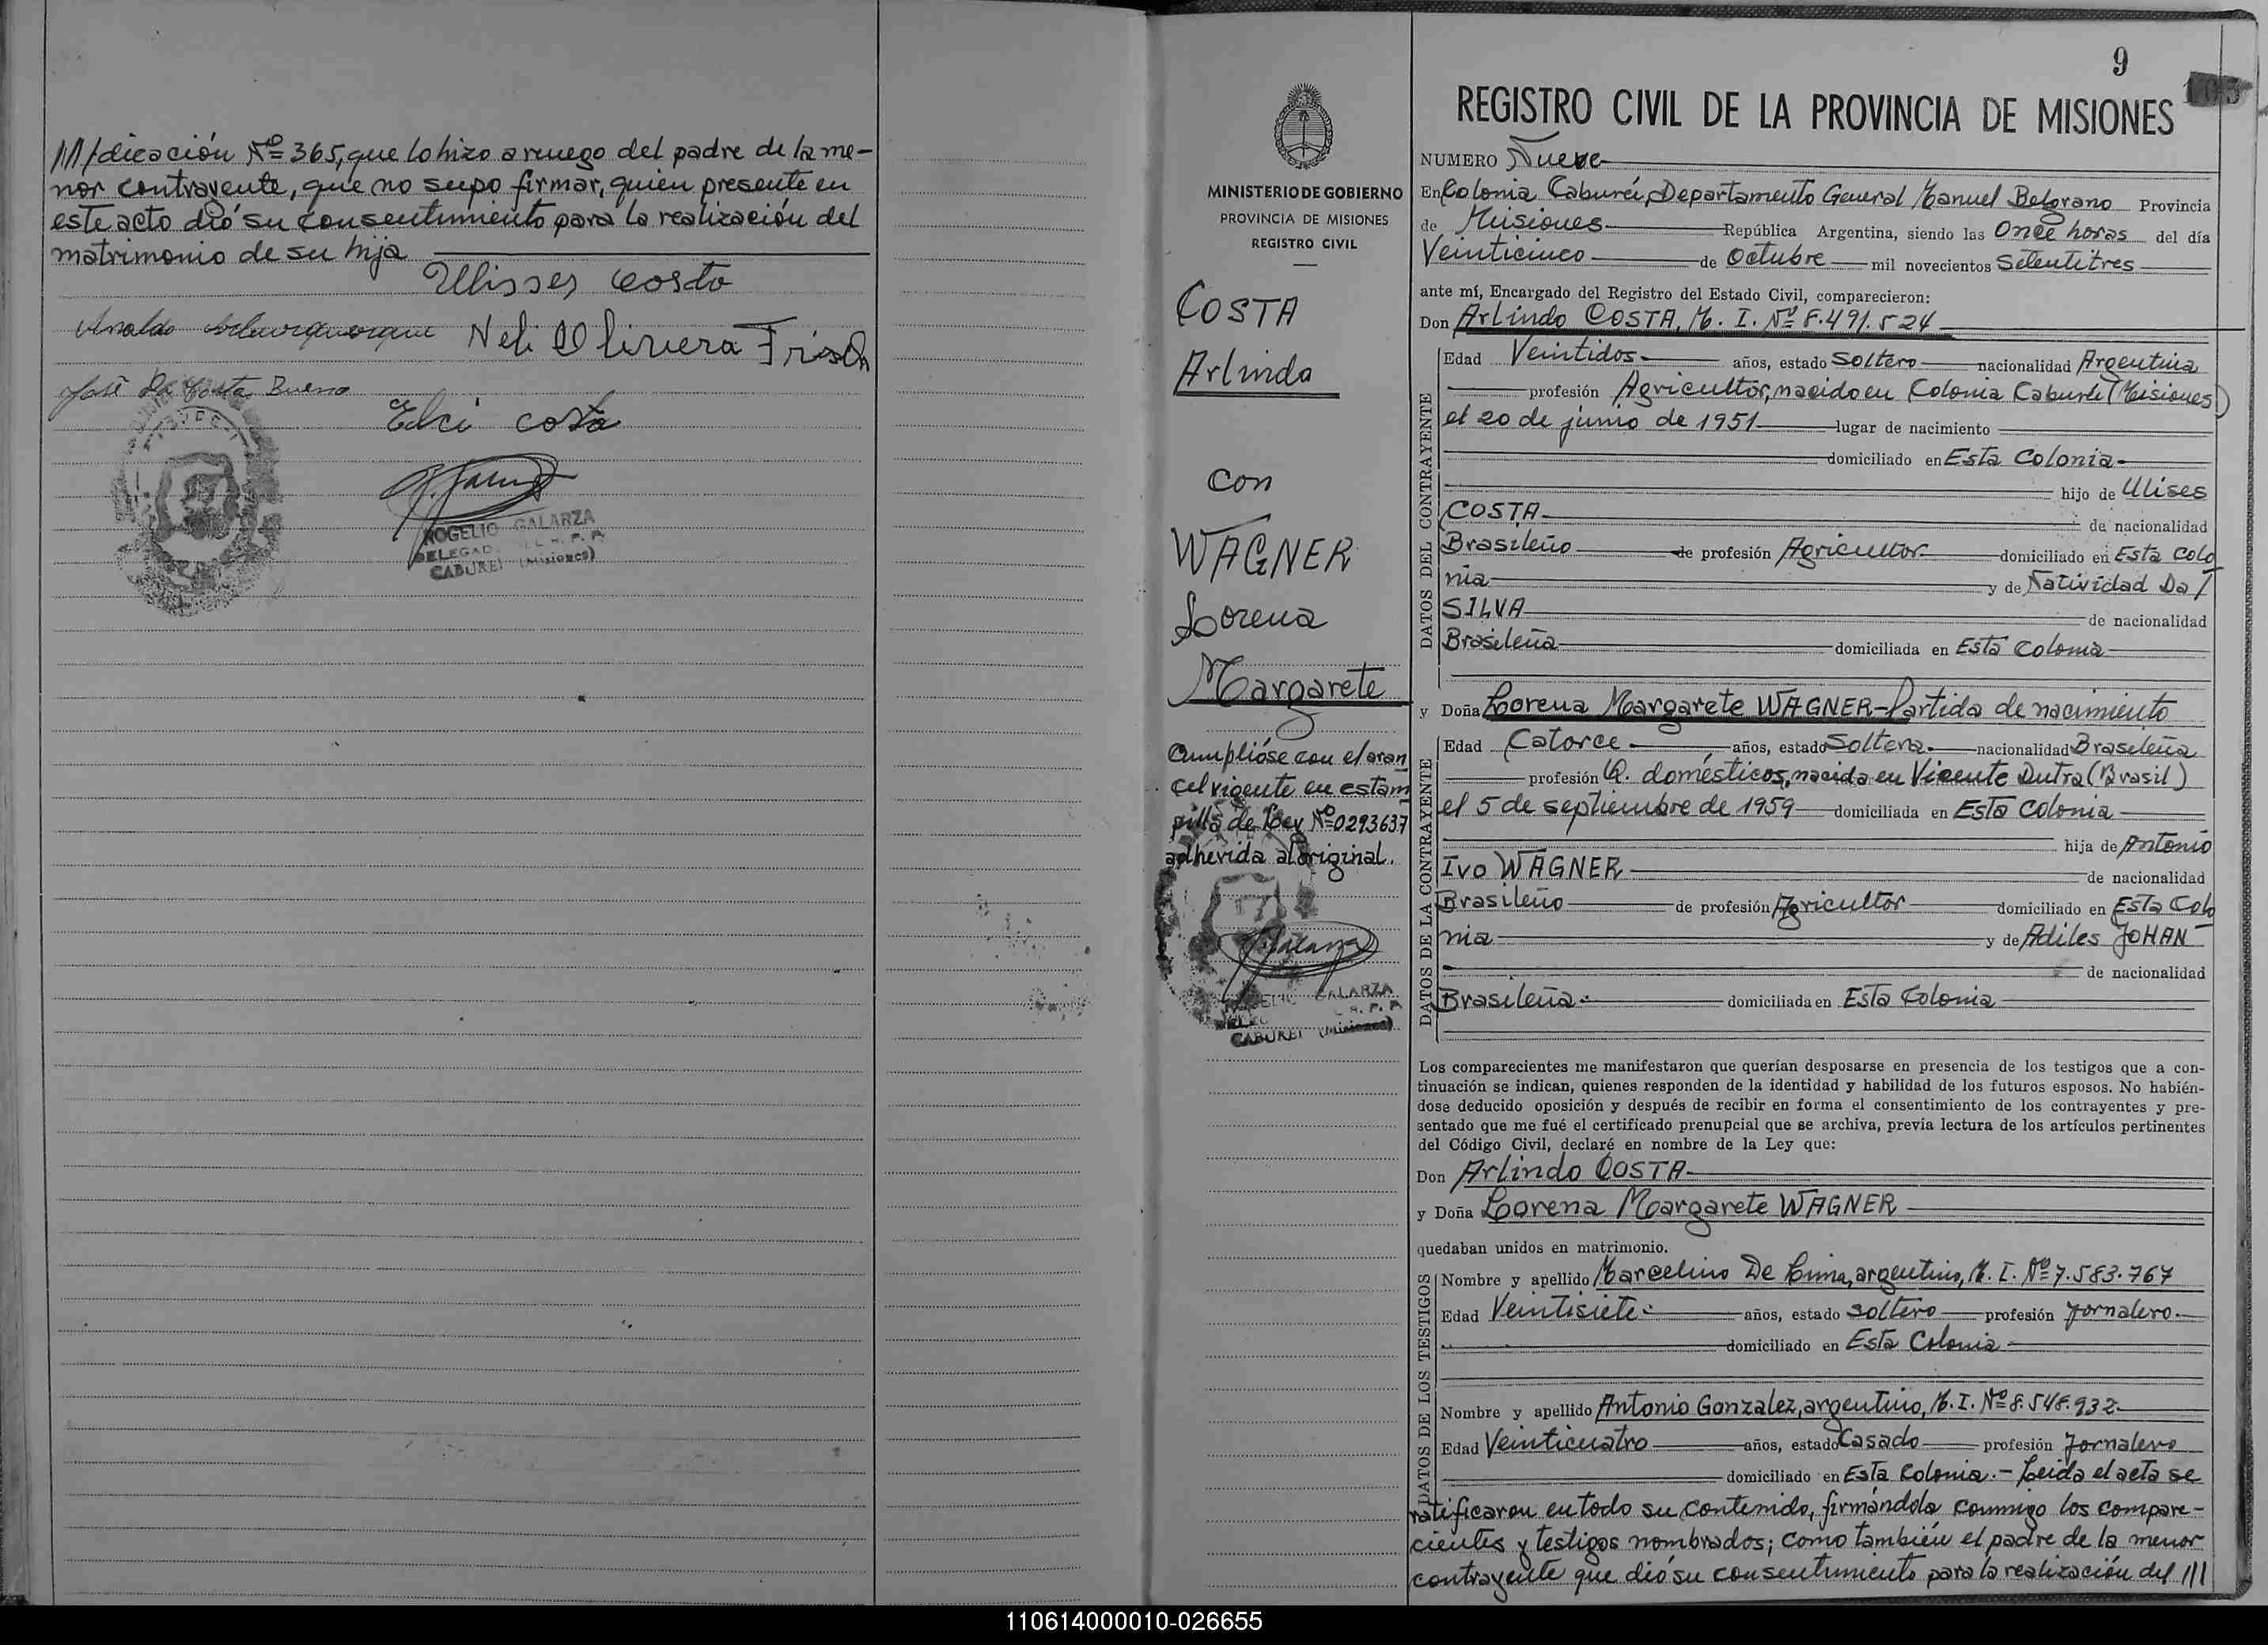 ///dicación Nº 365, que lo hizo a ruego del padre de la me-
nor contrayente, que no supo firmar, quien presente en
este acto dió su consentimiento para la realización del
matrimonio de su hija
Ulisses Costa
Neli Olivera Frisch
José Da Costa Bueno
Elci Costa
ROGELIO GALARZA
CABUREI (Misiones)
MINISTERIO DE GOBIERNO
PROVINCIA DE MISIONES
REGISTRO CIVIL
COSTA
Arlindo
con
WAGNER
Lorena
Margarete
Cumplióse con el aran
cel vigente en estam
pilla de Ley Nº 0293637
adherida al original.
GALARZA
CABUREI (Misiones)
9
REGISTRO CIVIL DE LA PROVINCIA DE MISIONES
NUMERO Nueve
En Colonia Caburéi, Departamento General Manuel Belgrano Provincia
de Misiones República Argentina, siendo las Once horas del día
Veinticinco de Octubre mil novecientos Setentitres
ante mí, Encargado del Registro del Estado Civil, comparecieron:
Don Arlindo COSTA, M. I. Nº 8.491.524
DATOS DEL CONTRAYENTE
Edad Veintidos años, estado Soltero nacionalidad Argentina
profesión Agricultor, nacido en Colonia Caburéi (Misiones)
el 20 de junio de 1951 lugar de nacimiento
domiciliado en Esta Colonia
hijo de Ulises
COSTA de nacionalidad
Brasileño de profesión Agricultor domiciliado en Esta Colo
nia y de Natividad Da
SILVA de nacionalidad
Brasileña domiciliada en Esta Colonia
y Doña Lorena Margarete WAGNER-Partida de nacimiento
DATOS DE LA CONTRAYENTE
Edad Catorce años, estado Soltera nacionalidad Brasileña
profesión Q. domésticos, nacida en Vicente Dutra (Brasil)
el 5 de septiembre de 1959 domiciliada en Esta Colonia
hija de Antonio
Ivo WAGNER de nacionalidad
Brasileño de profesión Agricultor domiciliado en Esta Colo
nia y de Adiles JOHAN
de nacionalidad
Brasileña domiciliada en Esta Colonia
Los comparecientes me manifestaron que querían desposarse en presencia de los testigos que a con-
tinuación se indican, quienes responden de la identidad y habilidad de los futuros esposos. No habién-
dose deducido oposición y después de recibir en forma el consentimiento de los contrayentes y pre-
sentado que me fué el certificado prenupcial que se archiva, previa lectura de los artículos pertinentes
del Código Civil, declaré en nombre de la Ley que:
Don Arlindo COSTA
y Doña Lorena Margarete WAGNER
quedaban unidos en matrimonio.
DATOS DE LOS TESTIGOS
Nombre y apellido Marcelino De Lima, argentino, M. I. Nº 7.583.767
Edad Veintisiete años, estado soltero profesión Jornalero
domiciliado en Esta Colonia
Nombre y apellido Antonio Gonzalez, argentino, M. I. Nº 8.548.932
Edad Veinticuatro años, estado Casado profesión Jornalero
domiciliado en Esta Colonia.- Leida el acta se
ratificaron en todo su contenido, firmándola conmigo los compare-
cientes y testigos nombrados; como también el padre de la menor
contrayente que dió su consentimiento para la realización del ///
110614000010-026655